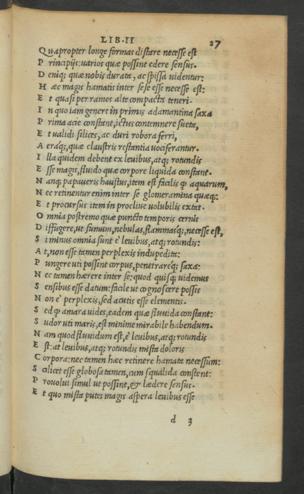 LIB. II 27
Quapropter longe formas distare necesse est
Principijs: uarios quæ possint edere sensus.
Deniq; quæ nobis durata, ac spissa uidentur:
Hæc magis hamatis inter sese esse necesse est:
Et quasi per ramos alte compacta teneri.
In quo iam genere in primis adamantina saxa
Prima acie constant, ictus contemnere sueta,
Et ualidi silices, ac duri robora ferri,
Aeraq;, quæ claustris restantia uociferantur.
Illa quidem debent ex leuibus, atq; rotundis
Esse magis, fluido quæ corpore liquida constant.
Nanq; papaueris haustus, item est facilis quod aquarum,
Nec retinentur enim inter se glomeramina quæq;:
Et procursus item in procliue uolubilis extat.
Omnia postremo quæ puncto temporis cernis
Diffugere, ut fumum, nebulas, flammasq;, necesse est,
Si minus omnia sunt e leuibus, atq; rotundis:
At, non esse tamen perplexis indupedita:
Pungere uti possint corpus, penetrareq; saxa:
Nec tamen hærere inter se: quod quisq; uidemus
Sensibus esse datum: facile ut cognoscere possis
Non e perplexis, sed acutis esse elementis.
Sed quod amara uides, eadem quæ fluuida constant:
Sudor uti maris, est minime mirabile habendum.
Nam quod fluuidum est, e leuibus, atq; rotundis
Est: at leuibus, atq; rotundis mista doloris
Corpora: nec tamen hæc retinere hamata necessum:
Scilicet esse globosa tamen, cum squalida constent:
Prouolui simul ut possint, & lædere sensus.
Et quo mista putes magis aspera leuibus esse
d 3